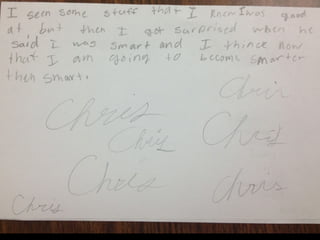 I seen some stuff that I knem I was good
at but then I got surprised when he
said I was smart and I thince now
that I am going to become smarter
then smart.
Chris
Chris
Chris
Chris
Chris
Chris
Chris